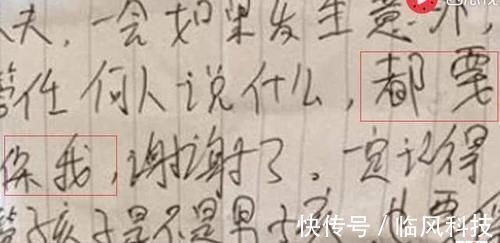 夫,一会如果发生意外,
管任何人说什么,都要
保我,谢谢了。一定记得
管孩子是不是男孩,
快传号/临风科技